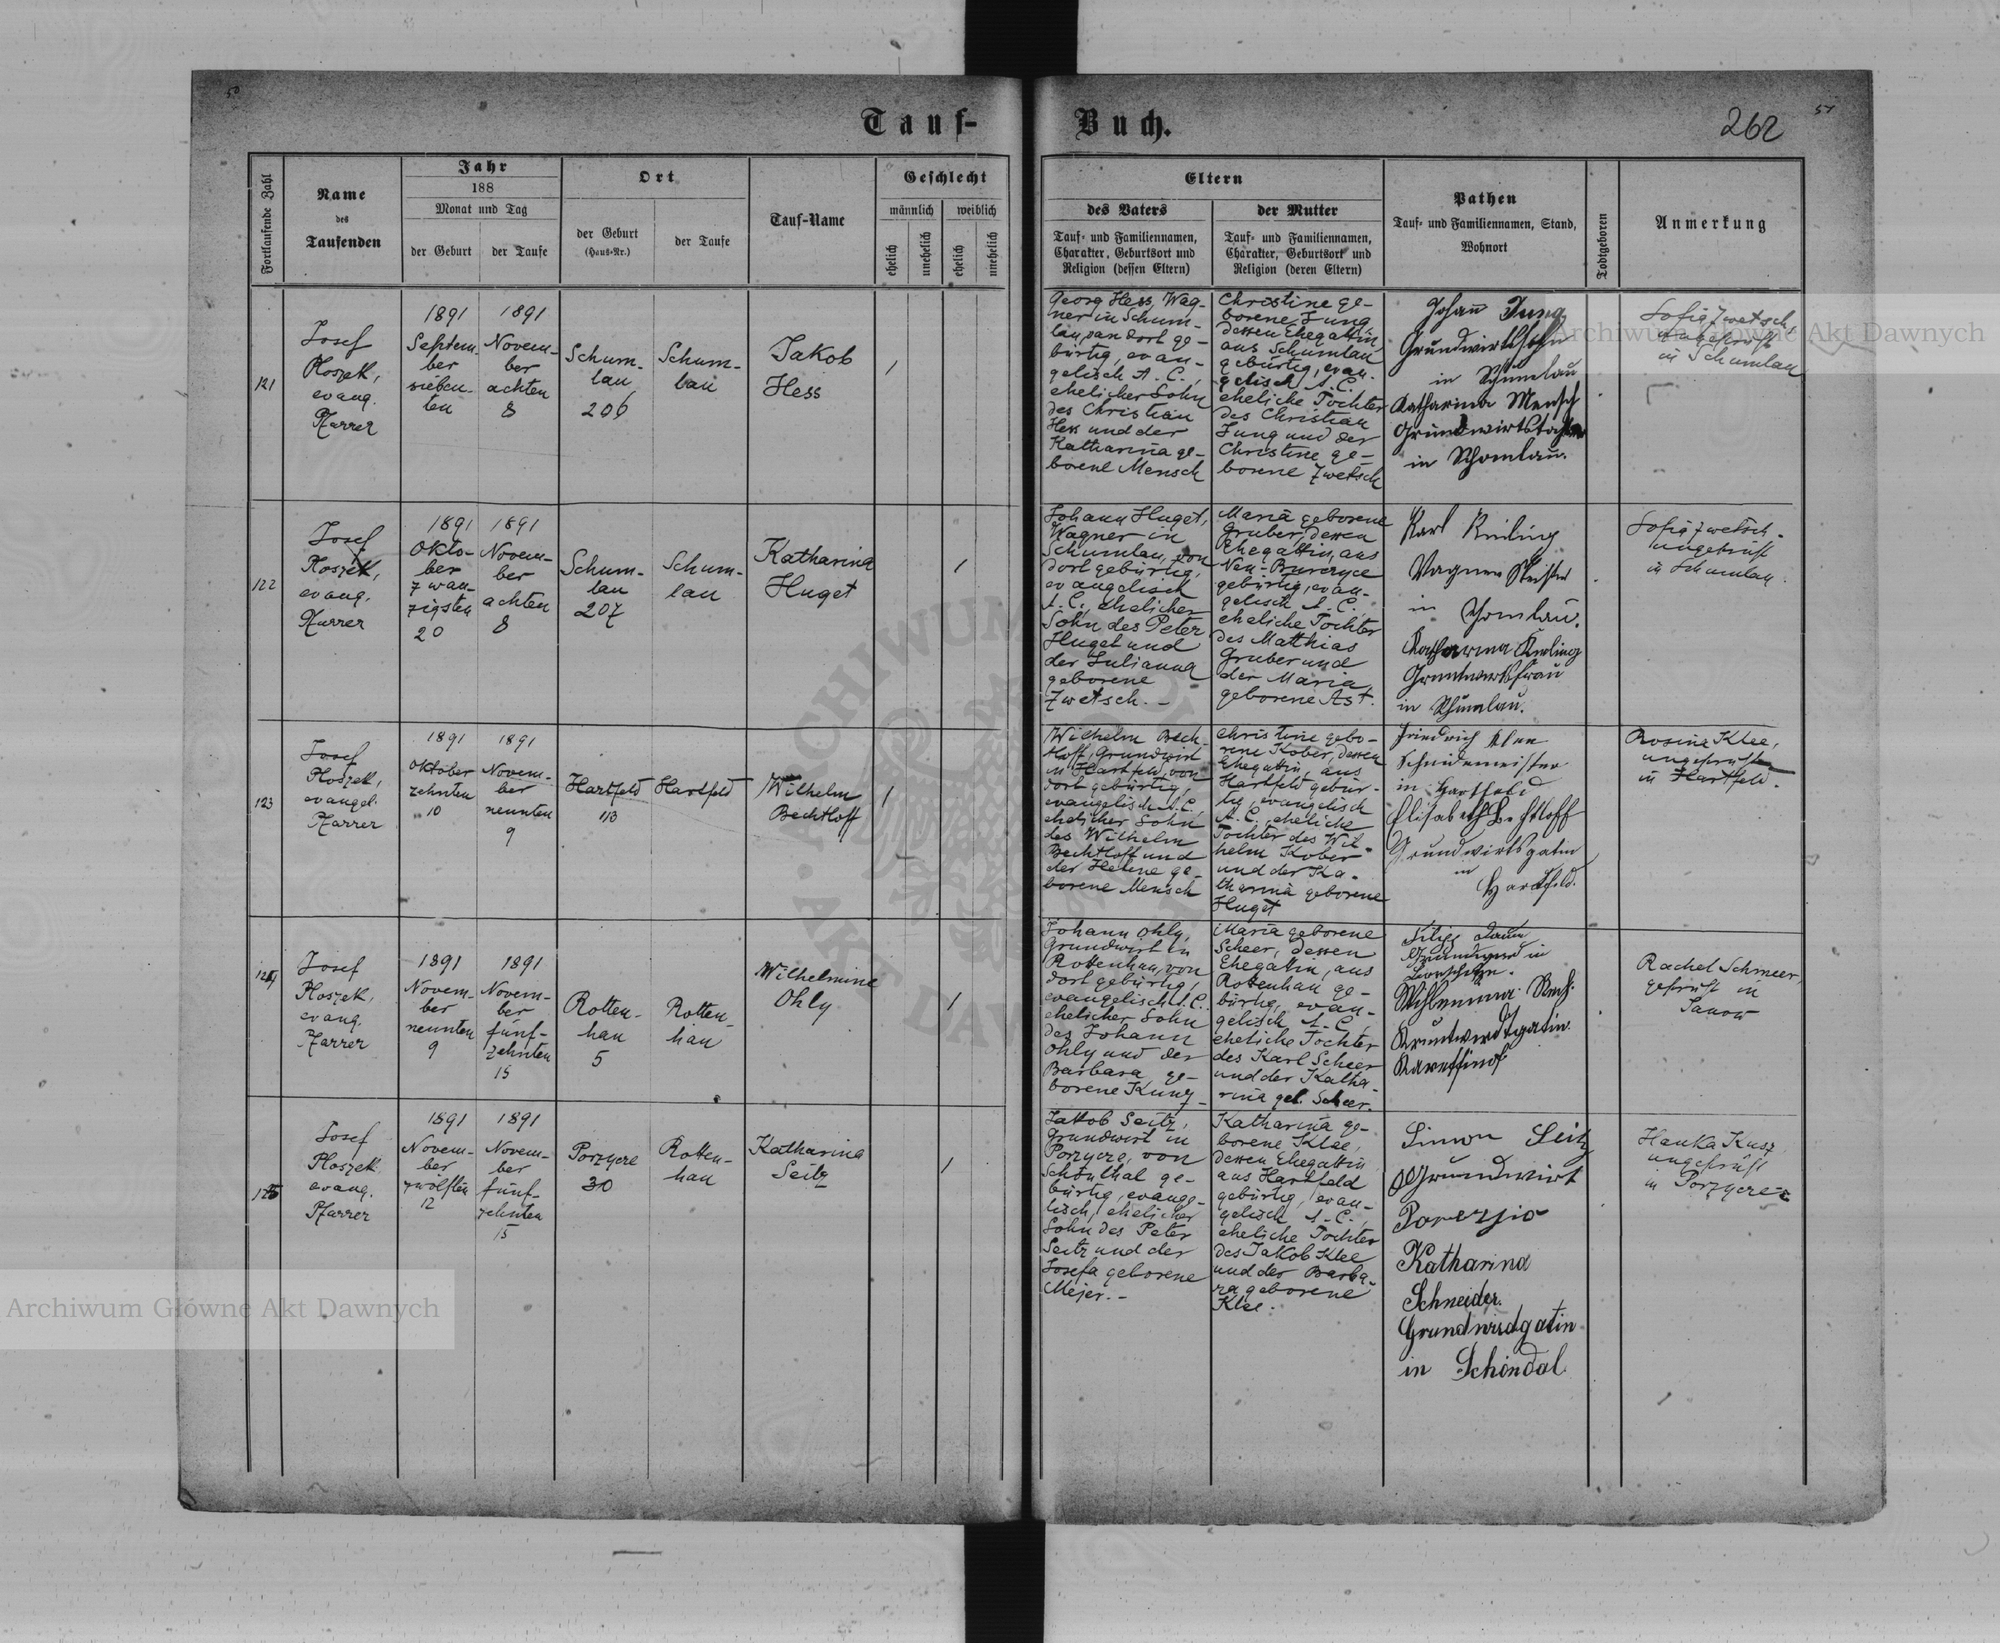 50
Tauf-
Buch.
262
51
Fortlaufende Zahl
Name
des
Taufenden
Jahr
188
Monat und Tag
der Geburt
der Taufe
Ort
der Geburt
(Haus-Nr.)
der Taufe
Tauf-Name
Geschlecht
männlich
weiblich
ehelich
unehelich
ehelich
unehelich
Eltern
des Vaters
Tauf- und Familiennamen,
Charakter, Geburtsort und
Religion (dessen Eltern)
der Mutter
Tauf- und Familiennamen,
Charakter, Geburtsort und
Religion (deren Eltern)
Pathen
Tauf- und Familiennamen, Stand,
Wohnort
Todtgeboren
Anmerkung
121
Josef
Ploszek,
evang.
Pfarrer
1891
Septem-
ber
sieben-
ten
1891
Novem-
ber
achten
8
Schum-
lau
206
Schum-
lau
Jakob
Hess
1
Georg Hess, Wag-
ner in Schum-
lau, von dort ge-
bürtig, evan-
gelisch A. C.,
ehelicher Sohn
des Christian
Hess und der
Katharina ge-
borene Mensch
Christine ge-
borene Jung
dessen Ehegattin,
aus Schumlau
gebürtig, evan-
gelisch A. C.
eheliche Tochter
des Christian
Jung und der
Christine ge-
borene Zwetsch
Johan Jung
Grundwirthsohn
in Schumlau
Katharina Mensch
in Schomlau.
Sofia Zwetsch,
ungeprüft
in Schumlau
122
Josef
Ploszek,
evang.
Pfarrer
1891
Okto-
ber
zwan-
zigsten
20
1891
Novem-
ber
achten
8
Schum-
lau
207
Schum-
lau
Katharina
Huget
1
Johann Huget,
Wagner in
Schumlau, von
dort gebürtig,
evangelisch
A. C., ehelicher
Sohn des Peter
Huget und
der Julianna
geborene
Zwetsch. -
Maria geborene
Gruber, dessen
Ehegattin, aus
Neu-Burczyce
gebürtig, evan-
gelisch A. C.,
eheliche Tochter
des Matthias
Gruber und
der Maria
geborene Ast.
Karl
in Schomlau.
Katharina
in Schumlau.
Sofia Zwetsch.
ungeprüft
in Schumlau.
123
Josef
Ploszek,
evangel.
Pfarrer
1891
Oktober
zehnten
10
1891
Novem-
ber
neunten
9
Hartfeld
113
Hartfeld
Wilhelm
Bechtloff
1
Wilhelm Bech-
tloff, Grundwirt
in Hartfeld, von
dort gebürtig,
evangelisch A. C.
ehelicher Sohn
des Wilhelm
Bechtloff und
der Helene ge-
borene Mensch
Christine gebo-
rene Kober, dessen
Ehegattin aus
Hartfeld gebür-
tig, evangelisch
A. C., eheliche
Tochter des Wil-
helm Kober
und der Ka-
tharina geborene
Huget
Friedrich Klee
Schneidemeister
in Hartfeld
Elisabeth Bechtloff
Grundwirtsgatin
in
Hartfeld.
Rosina Klee,
ungeprüft
in Hartfeld.
124
Josef
Ploszek,
evang.
Pfarrer
1891
Novem-
ber
neunten
9
1891
Novem-
ber
fünf-
zehnten
15
Rotten-
han
5
Rotten-
han
Wilhelmine
Ohly
1
Johann Ohly,
Grundwirt in
Rottenhan, von
dort gebürtig,
evangelisch A. C.
ehelicher Sohn
des Johann
Ohly und der
Barbara ge-
borene Kunz
Maria geborene
Scheer, dessen
Ehegattin, aus
Rottenhan ge-
bürtig, evan-
gelisch A. C.
eheliche Tochter
des Karl Scheer
und der Katha-
rina geb. Scheer.
Rachel Schmeer,
geprüft in
Janow
125
Josef
Ploszek
evang.
Pfarrer
1891
Novem-
ber
zwölften
12
1891
Novem-
ber
fünf-
zehnten
15
Porzycze
30
Rotten-
han
Katharina
Seitz
1
Jakob Seitz,
Grundwirt in
Porzycze, von
Schönthal ge-
bürtig, evange-
lisch, ehelicher
Sohn des Peter
Seitz und der
Josefa geborene
Mejer. -
Katharina ge-
borene Klee,
dessen Ehegattin
aus Hartfeld
gebürtig, evan-
gelisch A. C.,
eheliche Tochter
des Jakob Klee
und der Barba-
ra geborene
Klee.
Simon Seitz
Grundwirt
Katharina
Schneider.
Grundwirdgatin
in Schöndal
Hanka Kusz
ungeprüft
in Porzycze
Archiwum Główne Akt Dawnych
Archiwum Główne Akt Dawnych